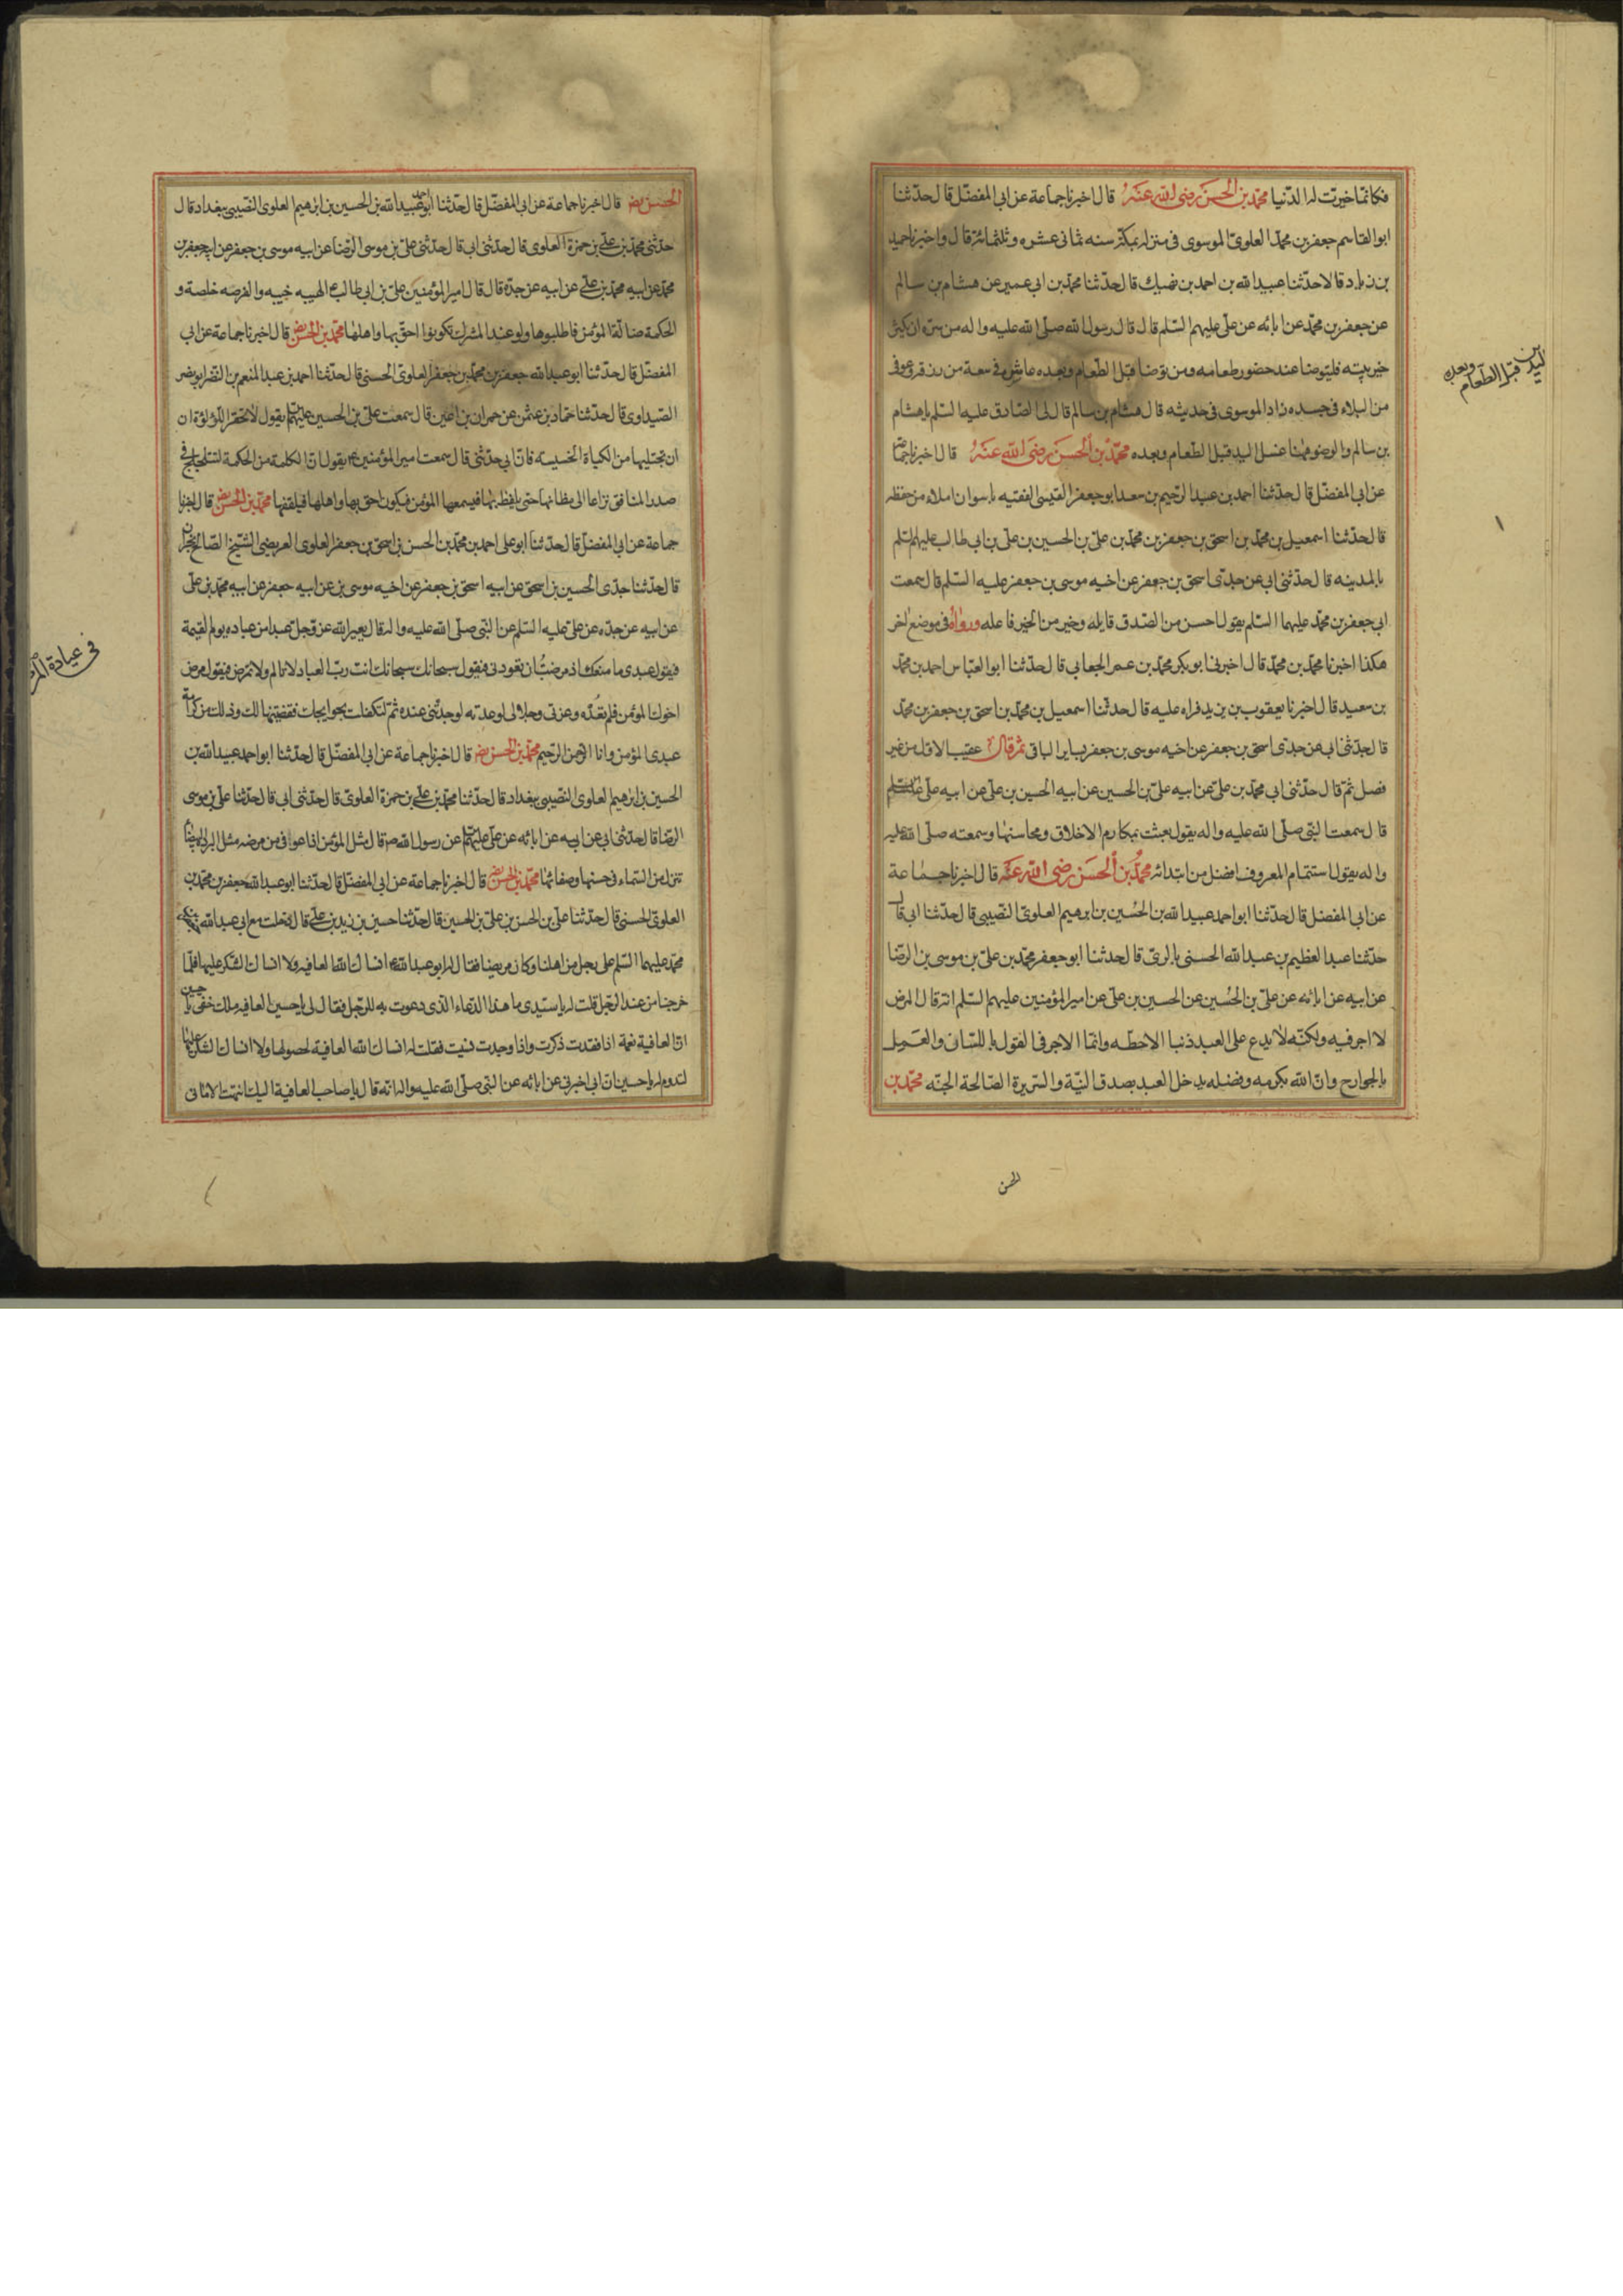 فكانما خيرت له الدنيا محمد بن الحسن رضى الله عنه قال اخبرنا جماعة عن ابى المفضل قال حدثنا
ابو القاسم جعفر بن محمد العلوى الموسوى فى منزله بمكة سنه ثمانى عشره وثلثمائة قال واخبرنا حميد
بن زياد قالا حدثنا عبيد الله بن احمد بن نهيك قال حدثنا محمد بن ابى عمير عن هشام بن سالم
عن جعفر بن محمد عن ابائه عن على عليهم السلم قال قال رسول الله صلى الله عليه واله من سره ان يكثر
خير بيته فليتوضا عند حضور طعامه ومن توضا قبل الطعام وبعده عاش فى سعة من رزقه وعوفى
من البلاء فى جسده زاد الموسوى فى حديثه قال هشام بن سالم قال لى الصادق عليه السلم يا هشام
بن سالم والوضو ههنا غسل اليد قبل الطعام وبعده محمد بن الحسن رضى الله عنه قال اخبرنا جماعة
عن ابى المفضل قال حدثنا احمد بن عبد الرحيم بن سعد ابو جعفر القيسى الفقيه باسوان املاء من حفظه
قال حدثنا اسمعيل بن محمد بن اسحق بن جعفر بن محمد بن على بن الحسين بن على بن ابى طالب عليهم السلم
بالمدينه قال حدثنى ابى عن جدى اسحق بن جعفر عن اخيه موسى بن جعفر عليه السلم قال سمعت
ابى جعفر بن محمد عليهما السلم يقول احسن من الصدق قايله وخير من الخير فاعله ورواه فى موضع اخر
هكذا اخبرنا محمد بن محمد قال اخبرنى ابو بكر محمد بن عمر الجعابى قال حدثنا ابو العباس احمد بن محمد
بن سعيد قال اخبرنا يعقوب بن يزيد قراه عليه قال حدثنا اسمعيل بن محمد بن اسحق بن جعفر بن محمد
قال حدثنى ابى عن جدى اسحق بن جعفر عن اخيه موسى بن جعفر بساير الباقى ثم قال عقيب الاول من غير
فصل ثم قال حدثنى ابى محمد بن على عن ابيه على بن الحسين عن ابيه الحسين بن على عن ابيه على
قال سمعت النبى صلى الله عليه واله يقول بعثت بمكارم الاخلاق ومحاسنها وسمعته صلى الله عليه
واله يقول استتمام المعروف افضل من ابتدائه محمد بن الحسن رضى الله عنه قال اخبرنا جماعة
عن ابى المفضل قال حدثنا ابو احمد عبيد الله بن الحسين بن ابرهيم العلوى النصيبى قال حدثنا ابى قال
حدثنا عبد العظيم بن عبد الله الحسنى بالرى قال حدثنا ابو جعفر محمد بن على بن موسى بن الرضا
عن ابيه عن ابائه عن على بن الحسين عن الحسين بن على عن امير المؤمنين عليهم السلم انه قال المرض
لا اجر فيه ولكنه لا يدع على العبد ذنبا الا حطه وانما الاجر فى القول باللسان والعمل
بالجوارح وان الله بكرمه وفضله يدخل العبد بصدق النية والسريرة الصالحة الجنه محمد بن
الحسن
اليدين قبل الطعام وبعده
الحسن رض قال اخبرنا جماعة عن ابى المفضل قال حدثنا ابو احمد عبيد الله بن الحسين بن ابرهيم العلوى النصيبى ببغداد قال
حدثنى محمد بن على بن حمزة العلوى قال حدثنى ابى قال حدثنى على بن موسى الرضا عن ابيه موسى بن جعفر عن ابيه جعفر بن
محمد عن ابيه محمد بن على عن ابيه عن جده قال قال امير المؤمنين على بن ابى طالب ع الهيبه خيبه والفرصه خلصة و
الحكمة ضالة المؤمن فاطلبوها ولو عند المشرك تكونوا احق بها واهلها محمد بن الحسن رض قال اخبرنا جماعة عن ابى
المفضل قال حدثنا ابو عبد الله جعفر بن محمد بن جعفر العلوى الحسنى قال حدثنا احمد بن عبد المنعم بن النضر ابو نصر
الصيداوى قال حدثنا حماد بن عثمن عن حمران بن اعين قال سمعت على بن الحسين عليهما يقول لا تحقر اللؤلؤة ان
ان تجتليها من الكباة الخسيسه فان ابى حدثنى قال سمعت امير المؤمنين ع يقول ان الكلمة من الحكمة لتتلجلج فى
صدر المنافق نزاعا الى مظانها حتى يلفظ بها فيسمعها المؤمن فيكون احق بها واهلها فيلقفها محمد بن الحسن رض قال اخبرنا
جماعة عن ابى المفضل قال حدثنا ابو على احمد بن محمد بن الحسن بن اسحق بن جعفر العلوى العريضى الشيخ الصالح بحران
قال حدثنا جدى الحسين بن اسحق عن ابيه اسحق بن جعفر عن اخيه موسى بن عن ابيه جعفر عن ابيه محمد بن على
عن ابيه عن جده عن على عليه السلم عن النبى صلى الله عليه واله قال يعير الله عز وجل عبدا من عباده يوم القيمة
فيقول عبدى ما منعك اذ مرضت ان تعودنى فيقول سبحانك سبحانك انت رب العباد لا تالم ولا تمرض فيقول مرض
اخوك المؤمن فلم تعده وعزتى وجلالى لو عدته لوجدتنى عنده ثم لتكفلت بحوايجك فقضيتها لك وذلك من كرامة
عبدى المؤمن وانا الرحمن الرحيم محمد بن الحسن رض قال اخبرنا جماعة عن ابى المفضل قال حدثنا ابو احمد عبيد الله بن
الحسين بن ابرهيم العلوى النصيبى ببغداد قال حدثنا محمد بن على بن حمزة العلوى قال حدثنى ابى قال حدثنا على بن موسى
الرضا قال حدثنى ابى عن ابيه عن ابائه عن على عليهم عن رسول الله ص قال مثل المؤمن اذا عوفى من مرضه مثل البردة البيضا
تنزل من السماء فى حسنها وصفائها محمد بن الحسن رض قال اخبرنا جماعة عن ابى المفضل قال حدثنا ابو عبد الله جعفر بن محمد بن
العلوى الحسنى قال حدثنا على بن الحسن بن على بن الحسين قال حدثنا حسين بن زيد بن على قال دخلت مع ابى عبد الله
محمد عليهما السلم على رجل من اهلنا وكان مريضا فقال له ابو عبد الله ع انساك الله العافيه ولا انساك الشكر عليها فلما
خرجنا من عند الرجل قلت له يا سيدى ما هذا الدعاء الذى دعوت به للرجل فقال لى يا حسين العافيه ملك خفى يا حسين
ان العافية نعمة اذا فقدت ذكرت واذا وجدت نسيت فقلت له انساك الله العافية لحصولها ولا انساك الشكر عليها
لتدوم له يا حسين ان ابى اخبرنى عن ابائه عن النبى صلى الله عليه واله انه قال يا صاحب العافية اليك انتهت الامانى
فى عيادة